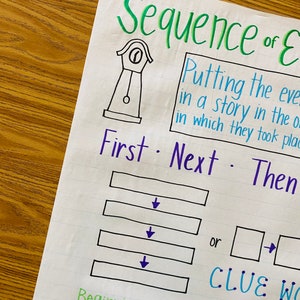 Sequence of E
Putting the eve
in a story in the o
in which they took plac
First · Next · Then
or
CLUE WO
Begin